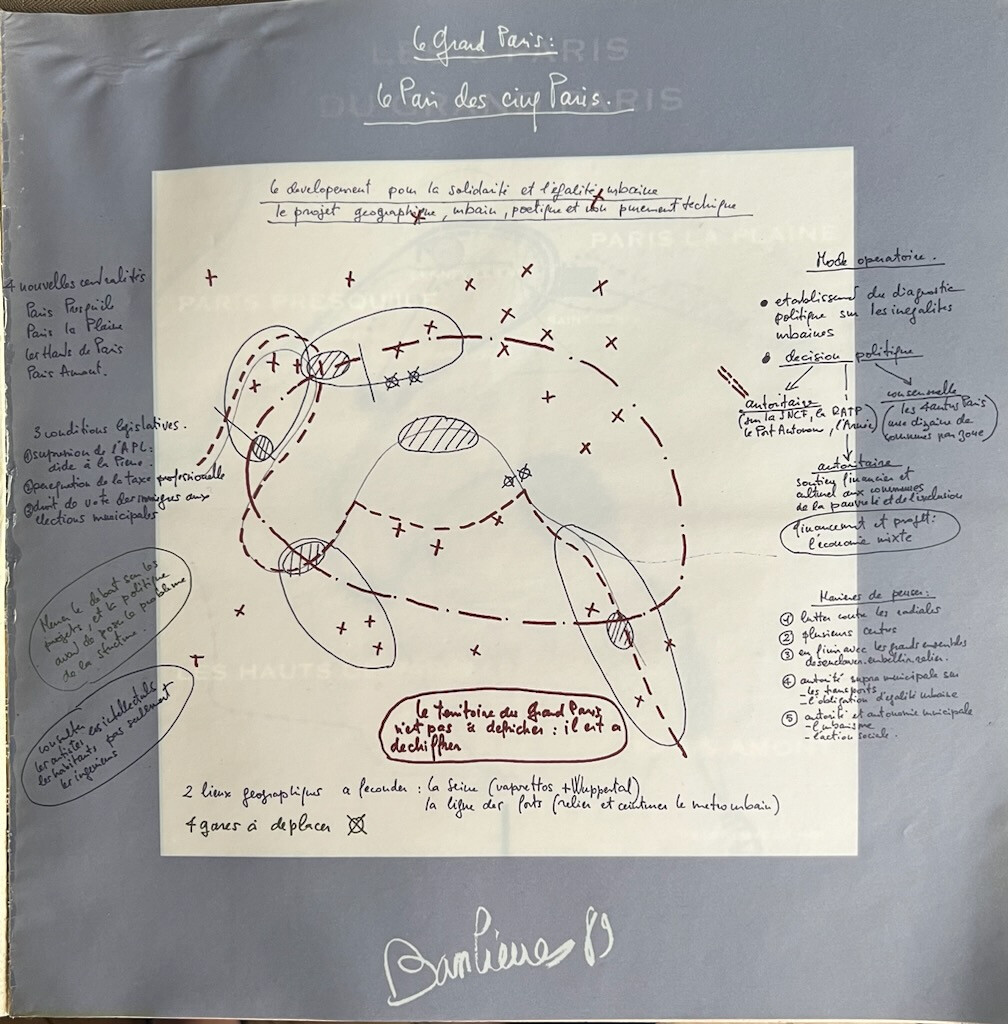 Le Grand Paris:
Le Pari des cinq Paris.
LES PARIS
DU GRAND PARIS
le developement pour la solidarité et l'égalité urbaine
le projet geographique, urbain, poetique et non purement techique
PARIS LA PLAINE
PARIS PRESQU'ILE
4 nouvelles centralités
Paris Presqu'il
Paris la Plaine
les Hauts de Paris
Paris Amont.
3 conditions législatives.
① supression de l'APL:
aide à la Pierre.
② perequation de la taxe professionelle
③ droit de vote des immigrés aux
elections municipales
Mener le débat sur les
projets, et la politique
avant de poser le problème
de la structure.
consulter
les artistes les intellectuels
les habitants, pas seulement
les ingenieurs
Mode operatoire.
• etablissement du diagnostic
politique sur les inegalités
urbaines
• decision politique
autoritaire
(sur la SNCF, la RATP
le Port Autonome, l'Armée)
consensuelle
(les 4 autres Paris
une dizaine de
communes par zone)
autoritaire
soutien financier et
culturel aux communes
de la pauvreté et de l'exclusion
financement et projet:
l'économie mixte
Manieres de penser:
① lutter contre les radiales
② plusieurs centres
③ en finir avec les grands ensembles
desenclaver. embellir. relier.
④ autorité supra municipale sur
- les transports
- l'obligation d'égalité urbaine
⑤ autorité et autonomie municipale
- l'urbanisme
- l'action sociale.
LES HAUTS
le territoire du Grand Paris
n'est pas à defricher: il est a
dechiffrer
2 lieux geographiques a feconder: la Seine (vaporettos + Wuppertal)
la ligne des forts (relier et ceinturer le metro urbain)
4 gares à deplacer
Banlieues 89